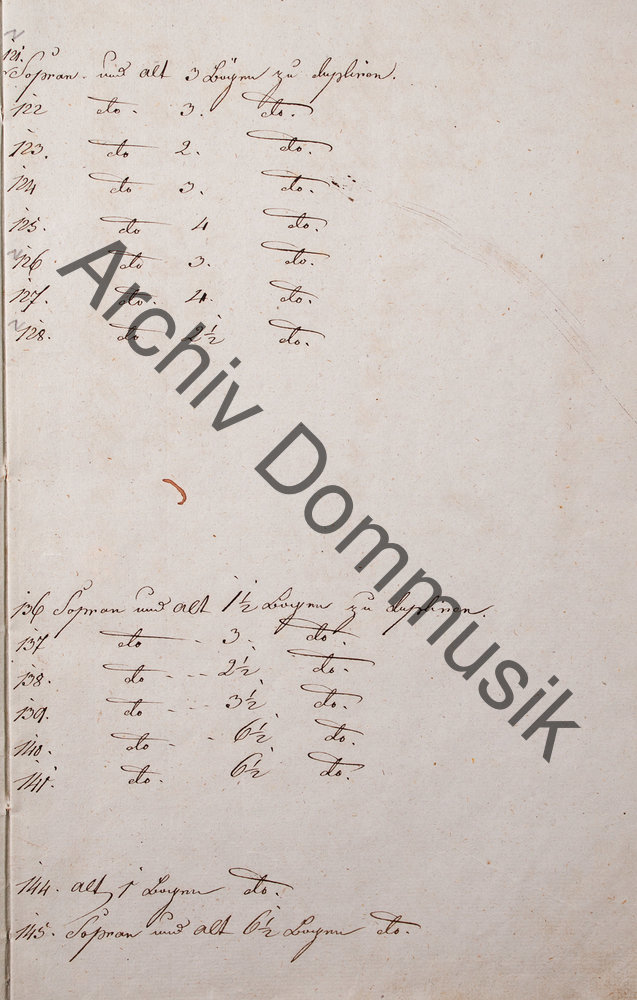 121.
Sopran und alt 3 Bögen zu dupliren.
122 do. 3. do.
123. do 2. do.
124 do 3. do.
125. do 4 do.
126 do 3. do.
127. do. 4. do.
128. do 2½ do.
136 Sopran und alt 1½ Bogen zu dupliren.
137 do 3. do.
138. do 2½ do.
139. do 3½ do.
140. do 6½ do.
141. do. 6½ do.
144. alt, 1 Bogen do.
145. Sopran und alt 6½ Bogen do.
Archiv Dommusik